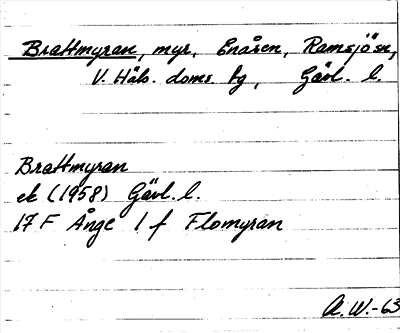 Brattmyran, myr, Enåsen, Ramsjö sn,
V. Häls. doms. bg, Gävl. l.
Brattmyran
ek (1958) Gävl. l.
17 F Ånge 1 f Flomyran
A.W.-63